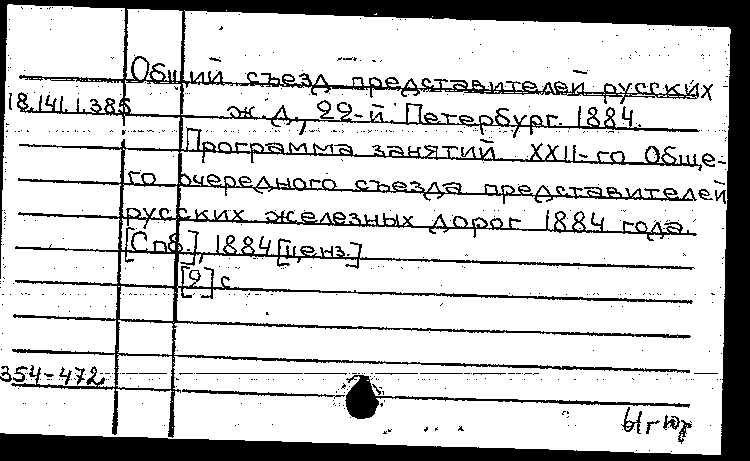 Общий съезд представителей русских
18.141.1.385
ж.д., 22-й. Петербург. 1884.
Программа занятий XXII-го Обще-
го очередного съезда представителей
русских железных дорог 1884 года.
[Спб.], 1884 [ценз.]
[2] с
354-472